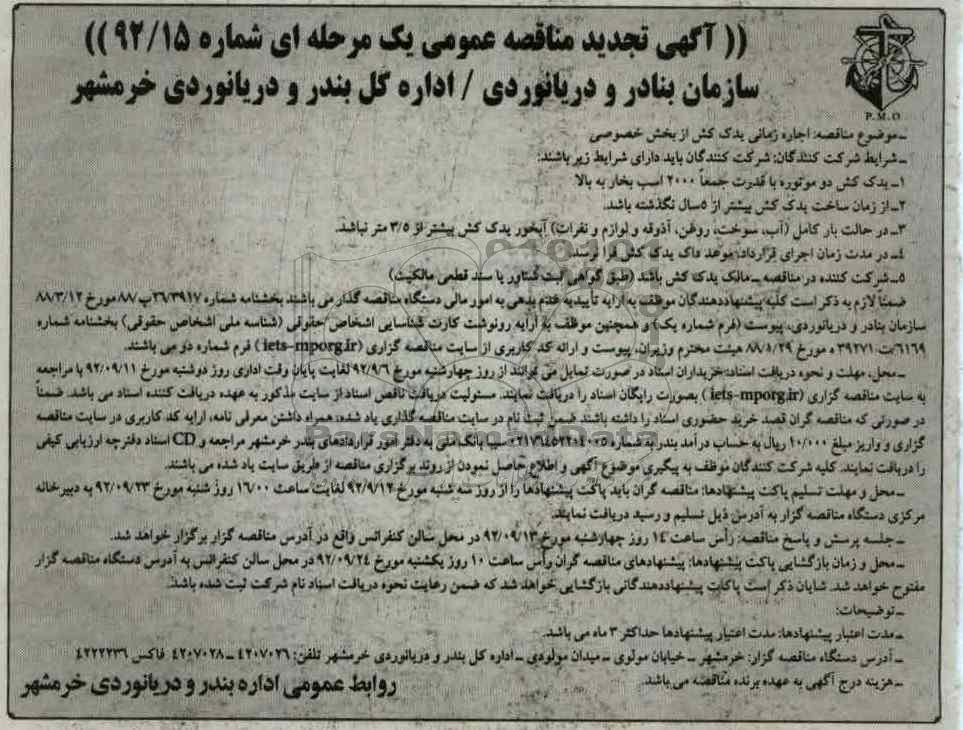 (( آگهی تجدید مناقصه عمومی یک مرحله ای شماره ۹۲/۱۵ ))
سازمان بنادر و دریانوردی / اداره کل بندر و دریانوردی خرمشهر
P.M.O
ـ موضوع مناقصه: اجاره زمانی یدک کش از بخش خصوصی
ـ شرایط شرکت کنندگان: شرکت کنندگان باید دارای شرایط زیر باشند:
۱ـ یدک کش دو موتوره با قدرت جمعاً ۲۰۰۰ اسب بخار به بالا
۲ـ از زمان ساخت یدک کش بیشتر از ۵سال نگذشته باشد.
۳ـ در حالت بار کامل (آب، سوخت، روغن، آذوقه و لوازم و نفرات) آبخور یدک کش بیشتر از ۳/۵ متر نباشد.
۴ـ در مدت زمان اجرای قرارداد، موعد داک یدک کش فرا نرسد.
۵ـ شرکت کننده در مناقصه ـ مالک یدک کش باشد (طبق گواهی ثبت شناور یا سند قطعی مالکیت)
ضمناً لازم به ذکر است کلیه پیشنهاددهندگان موظف به ارایه تأییدیه عدم بدهی به امور مالی دستگاه مناقصه گذار می باشند بخشنامه شماره ۲۶/۳۹۱۷ب۸۷ مورخ ۸۸/۳/۱۲
سازمان بنادر و دریانوردی، پیوست (فرم شماره یک) و همچنین موظف به ارایه رونوشت کارت شناسایی اشخاص حقوقی (شناسه ملی اشخاص حقوقی) بخشنامه شماره
۶۱۶۹/ت۳۹۲۷۱ ه مورخ ۸۸/۱/۲۹ هیئت محترم وزیران، پیوست و ارائه کد کاربری از سایت مناقصه گزاری (iets-mporg.ir) فرم شماره دو می باشند.
ـ محل، مهلت و نحوه دریافت اسناد: خریداران اسناد در صورت تمایل می توانند از روز چهارشنبه مورخ ۹۲/۹/۶ لغایت پایان وقت اداری روز دوشنبه مورخ ۹۲/۰۹/۱۱ با مراجعه
به سایت مناقصه گزاری (iets-mporg.ir) بصورت رایگان اسناد را دریافت نمایند. مسئولیت دریافت ناقص اسناد از سایت مذکور به عهده دریافت کننده اسناد می باشد. ضمناً
در صورتی که مناقصه گران قصد خرید حضوری اسناد را داشته باشند ضمن ثبت نام در سایت مناقصه گذاری یاد شده، همراه داشتن معرفی نامه، ارایه کد کاربری در سایت مناقصه
گزاری و واریز مبلغ ۱۰/۰۰۰ ریال به حساب درآمد بندر به شماره ۰۲۱۷۶۴۵۲۲۰۴۰۰۵ سیبا بانک ملی به دفتر امور قراردادهای بندر خرمشهر مراجعه و CD اسناد دفترچه ارزیابی کیفی
را دریافت نمایند. کلیه شرکت کنندگان موظف به پیگیری موضوع آگهی و اطلاع حاصل نمودن از روند برگزاری مناقصه از طریق سایت یاد شده می باشند.
ـ محل و مهلت تسلیم پاکت پیشنهادها: مناقصه گران باید پاکت پیشنهادها را از روز سه شنبه مورخ ۹۲/۹/۱۲ لغایت ساعت ۱۶/۰۰ روز شنبه مورخ ۹۲/۰۹/۲۳ به دبیرخانه
مرکزی دستگاه مناقصه گزار به آدرس ذیل تسلیم و رسید دریافت نمایند.
ـ جلسه پرسش و پاسخ مناقصه: رأس ساعت ۱۴ روز چهارشنبه مورخ ۹۲/۰۹/۱۳ در محل سالن کنفرانس واقع در آدرس مناقصه گزار برگزار خواهد شد.
ـ محل و زمان بازگشایی پاکت پیشنهادها: پیشنهادهای مناقصه گران رأس ساعت ۱۰ روز یکشنبه مورخ ۹۲/۰۹/۲۴ در محل سالن کنفرانس به آدرس دستگاه مناقصه گزار
مفتوح خواهد شد. شایان ذکر است پاکات پیشنهاددهندگانی بازگشایی خواهد شد که ضمن رعایت نحوه دریافت اسناد نام شرکت ثبت شده باشد.
ـ توضیحات:
ـ مدت اعتبار پیشنهادها: مدت اعتبار پیشنهادها حداکثر ۳ ماه می باشد.
ـ آدرس دستگاه مناقصه گزار: خرمشهر ـ خیابان مولوی ـ میدان مولودی ـ اداره کل بندر و دریانوردی خرمشهر تلفن: ۴۲۰۷۰۲۶ ـ ۴۲۰۷۰۲۸ فاکس ۴۲۲۲۲۳۶
ـ هزینه درج آگهی به عهده برنده مناقصه می باشد.
روابط عمومی اداره بندر و دریانوردی خرمشهر